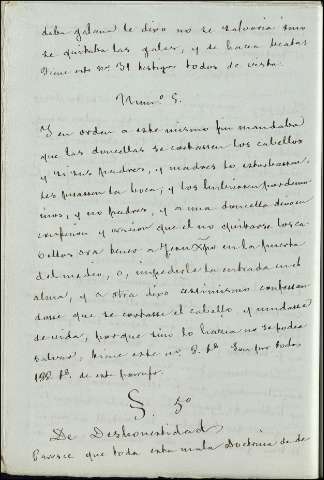 daba galana le dixo no se salvaria sino
se quitaba las galas, y se hacia beata
Tiene este nº 31 testigos todos de vista.
Numº 5.
Y en orden a este mismo fin mandaba
que las doncellas se cortassen los cabellos
y si sus padres, y madres lo estorbassen,
les la boca; y los
, y no padres, y a una doncella devota
confession y oracion que el no quitarse los ca
bellos era tener a Jesu Xpo en la puerta
del medio, o, impederle la entrada en el
alma, y a otra dixo assimismo confessan
dose que se cortasse el cabello y mudasse
de vida, porque sino lo hacia no se podia
salvar, tiene este nº 8 tº. Son por todos
122 tº. de este parrafo.
§. 5º
De Deshonestidad
Parece que toda esta mala Doctrina de de